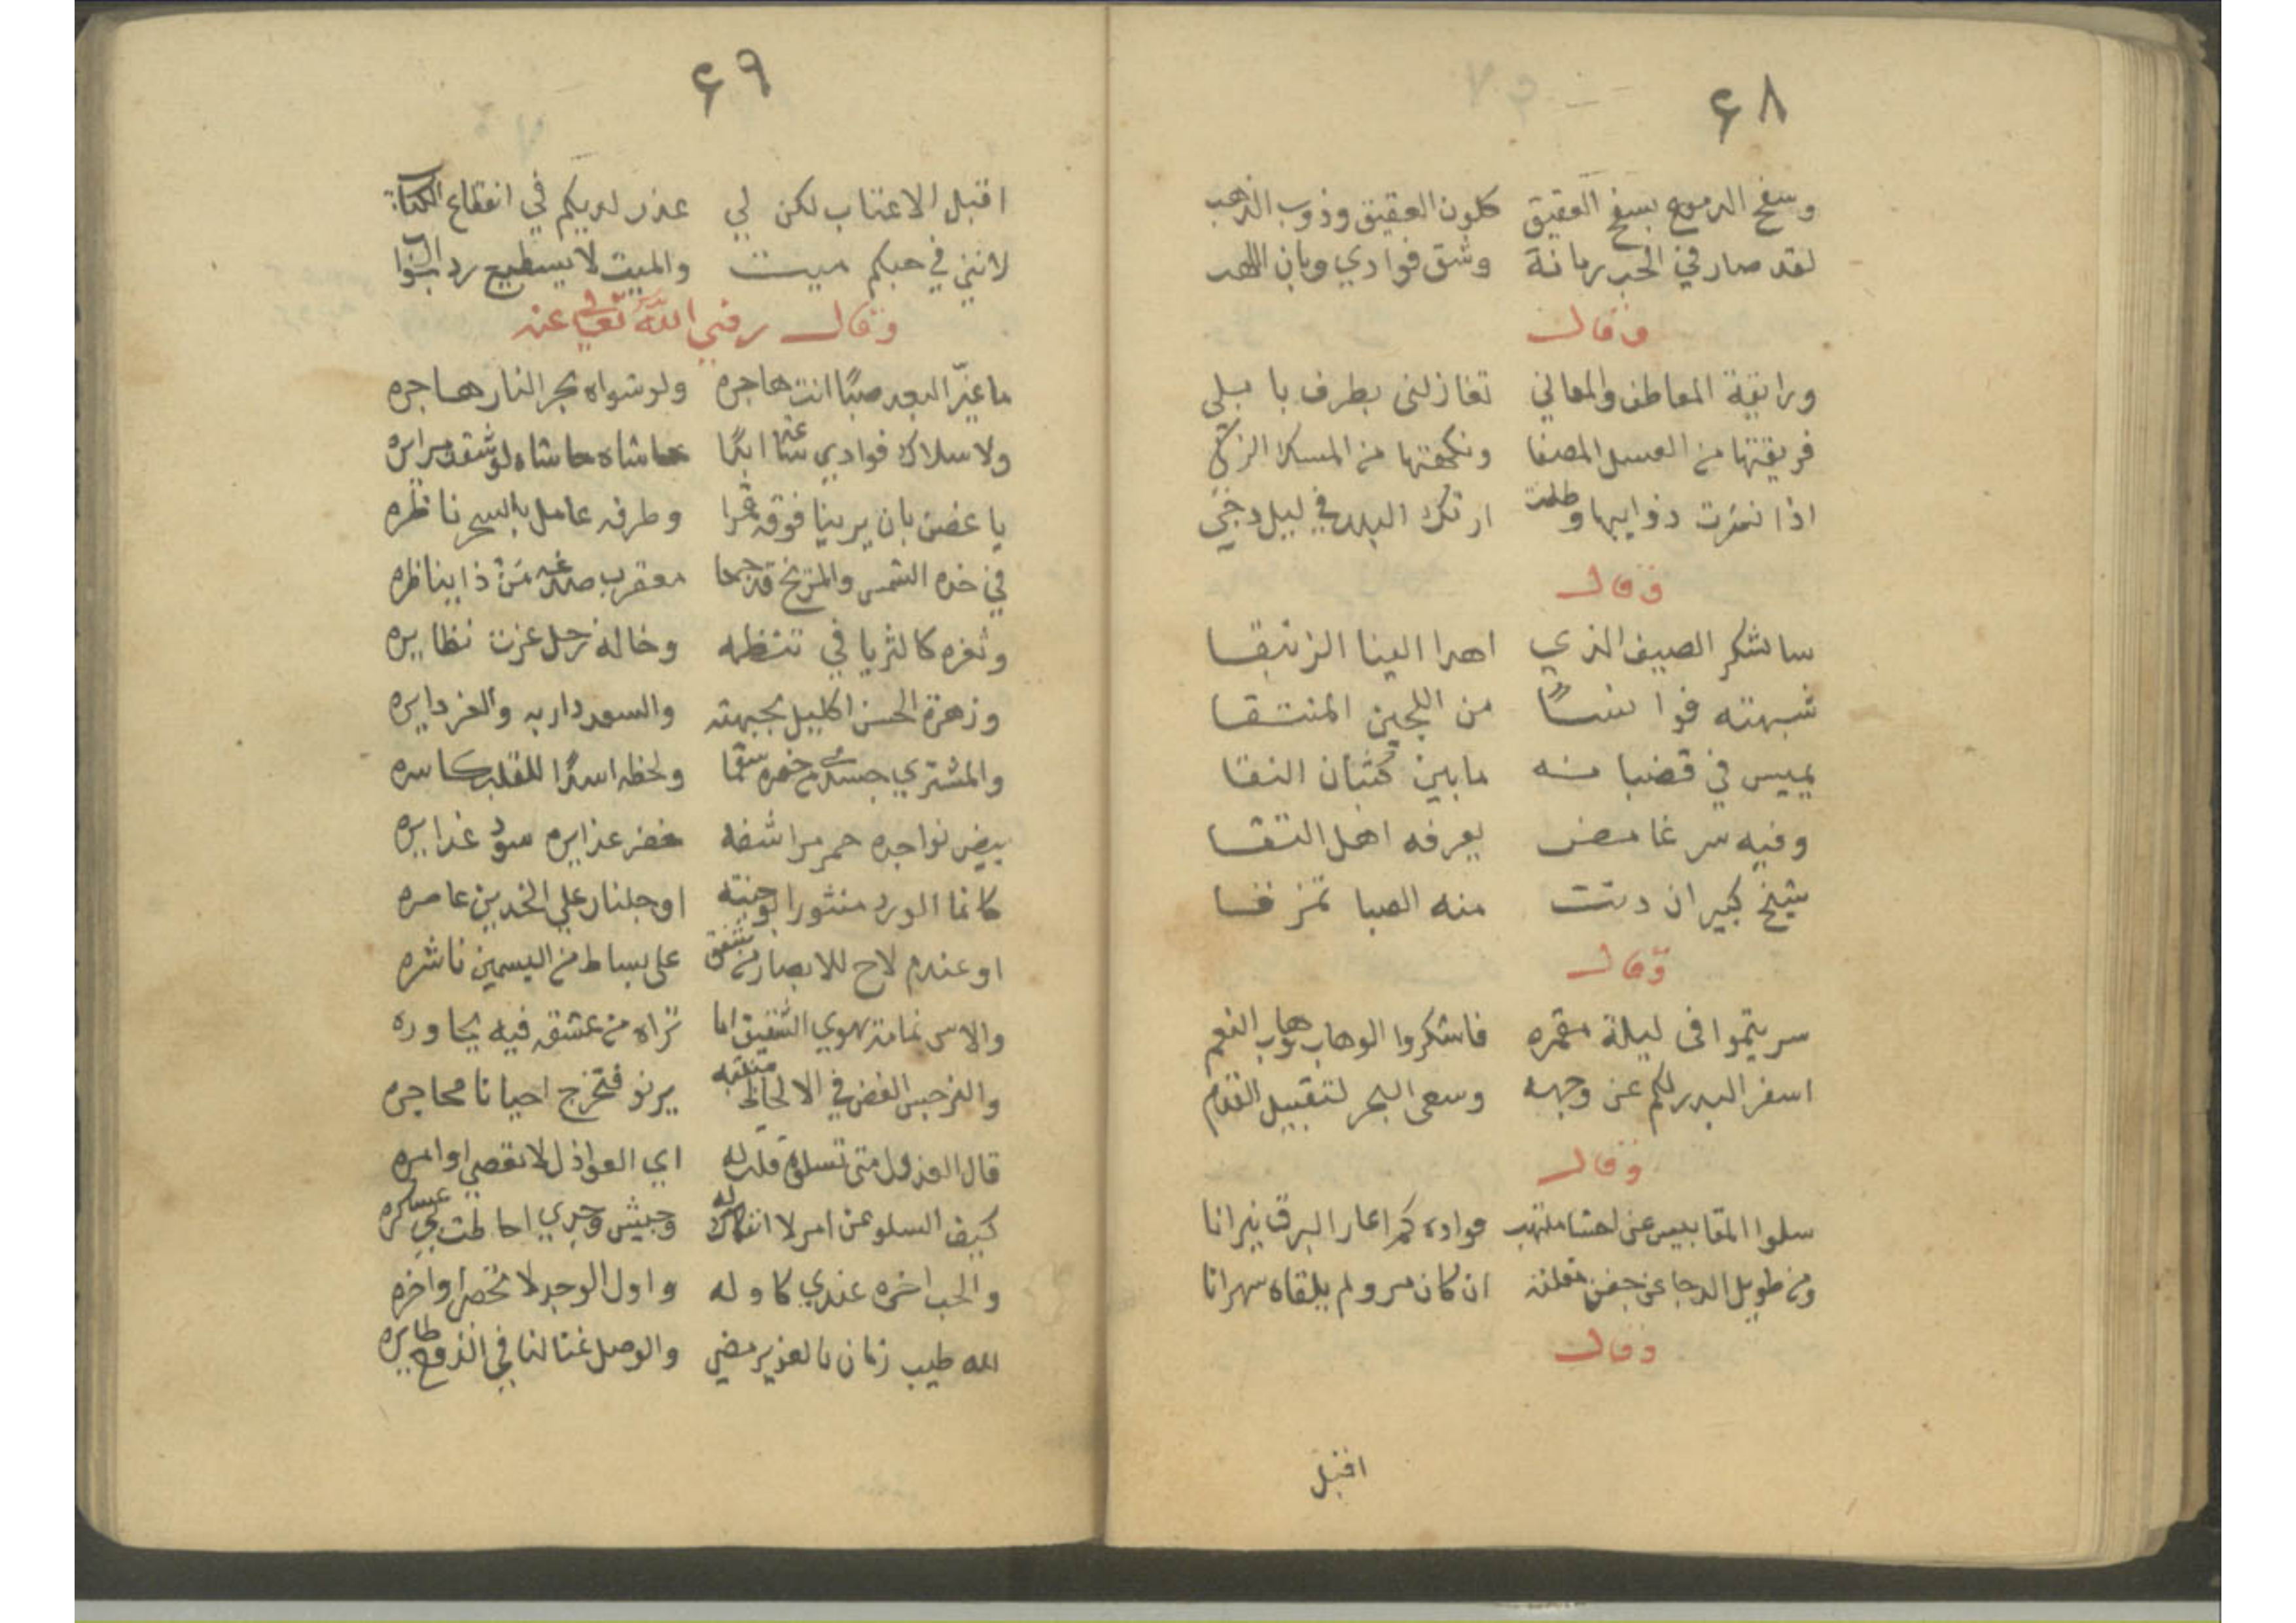 ۶۸
وسفح الدموع بسفح العقيق كلون العقيق وذوب الذهب
لقد صار في الحب رمانة وشق فوادي وبان اللهب
وقال
ورايقة المعاطف والمعاني تغازلنى بطرف با بلي
فريقتها من العسل المصفا ونكهتها من المسك الزكي
اذا نشرت ذوايبها وطلت ارتك البدر في ليل دجي
وقال
ساشكر الصيف الذي اهدا الينا الزنبقا
شبهته فوانسًا من اللجين المنتقا
يميس في قضبانه مابين كثبان النقا
وفيه سر غامض يعرفه اهل التقا
شيخ كبير ان دنت منه الصبا تمزقا
وقال
سريتموا فى ليلة مقمره فاشكروا الوهاب هاب النعم
اسفر البدر لكم عن وجهه وسعى البحر لتقبيل القدم
وقال
سلوا المقابيس عن احشا ملتهب فواده كم اعار البرق نيرانا
ومن طويل الدجا عن جفن مقلته ان كان مر ولم يلقاه سهرانا
وقال
اقبل
۶۹
اقبل الاعتاب لكن لي عذر لديكم في انقطاع الكتاب
لانني في حبكم ميت والميت لا يسطيع رد الجواب
وقال رضي الله تعالى عنه
ما غيّر البعد صبًا انت هاجره ولو شواه بحر النار هاجره
ولا سلاك فوادي عنك ابدًا حاشاه حاشاه لو شقت مرايره
يا غصن بان يرينا فوقه قمرا وطرفه عامل بالسحر ناظره
في خده الشمس والمريخ قد جمعا معقرب صدغه من ذا يناظره
وثغره كالثريا في تنظمه وخاله زحل عزت نظايره
وزهرة الحسن اكليل بجبهته والسعد داربه والعز دايره
والمشتري جسدي من خصره سقما ولحظه اسدًا للقلب كاسره
بيض نواجده حمر مراشفه خضر عذايره سود غدايره
كانما الورد منثورا بوجنته او جلنار علي الخدين عاصره
او عندم لاح للابصار من شفق على بساط من اليسمين ناشره
والاس نمامة يهوي الشقيق اما تراه من عشقه فيه يجاوره
والنرجس الغض في الالحاظ يرنو فتخرج احيانا محاجره
قال العذول متى تسلوه قلت له اي العواذل لا تقصي اوامره
كيف السلو عن امر لا انفكاك له وجيش وجدي احاطت بي عسكره
والحب اخره عندي كاوله واول الوجد لا تحصر اواخره
الله طيب زمان بالعزيز مضي والوصل غنا لنا في الدوح طايره